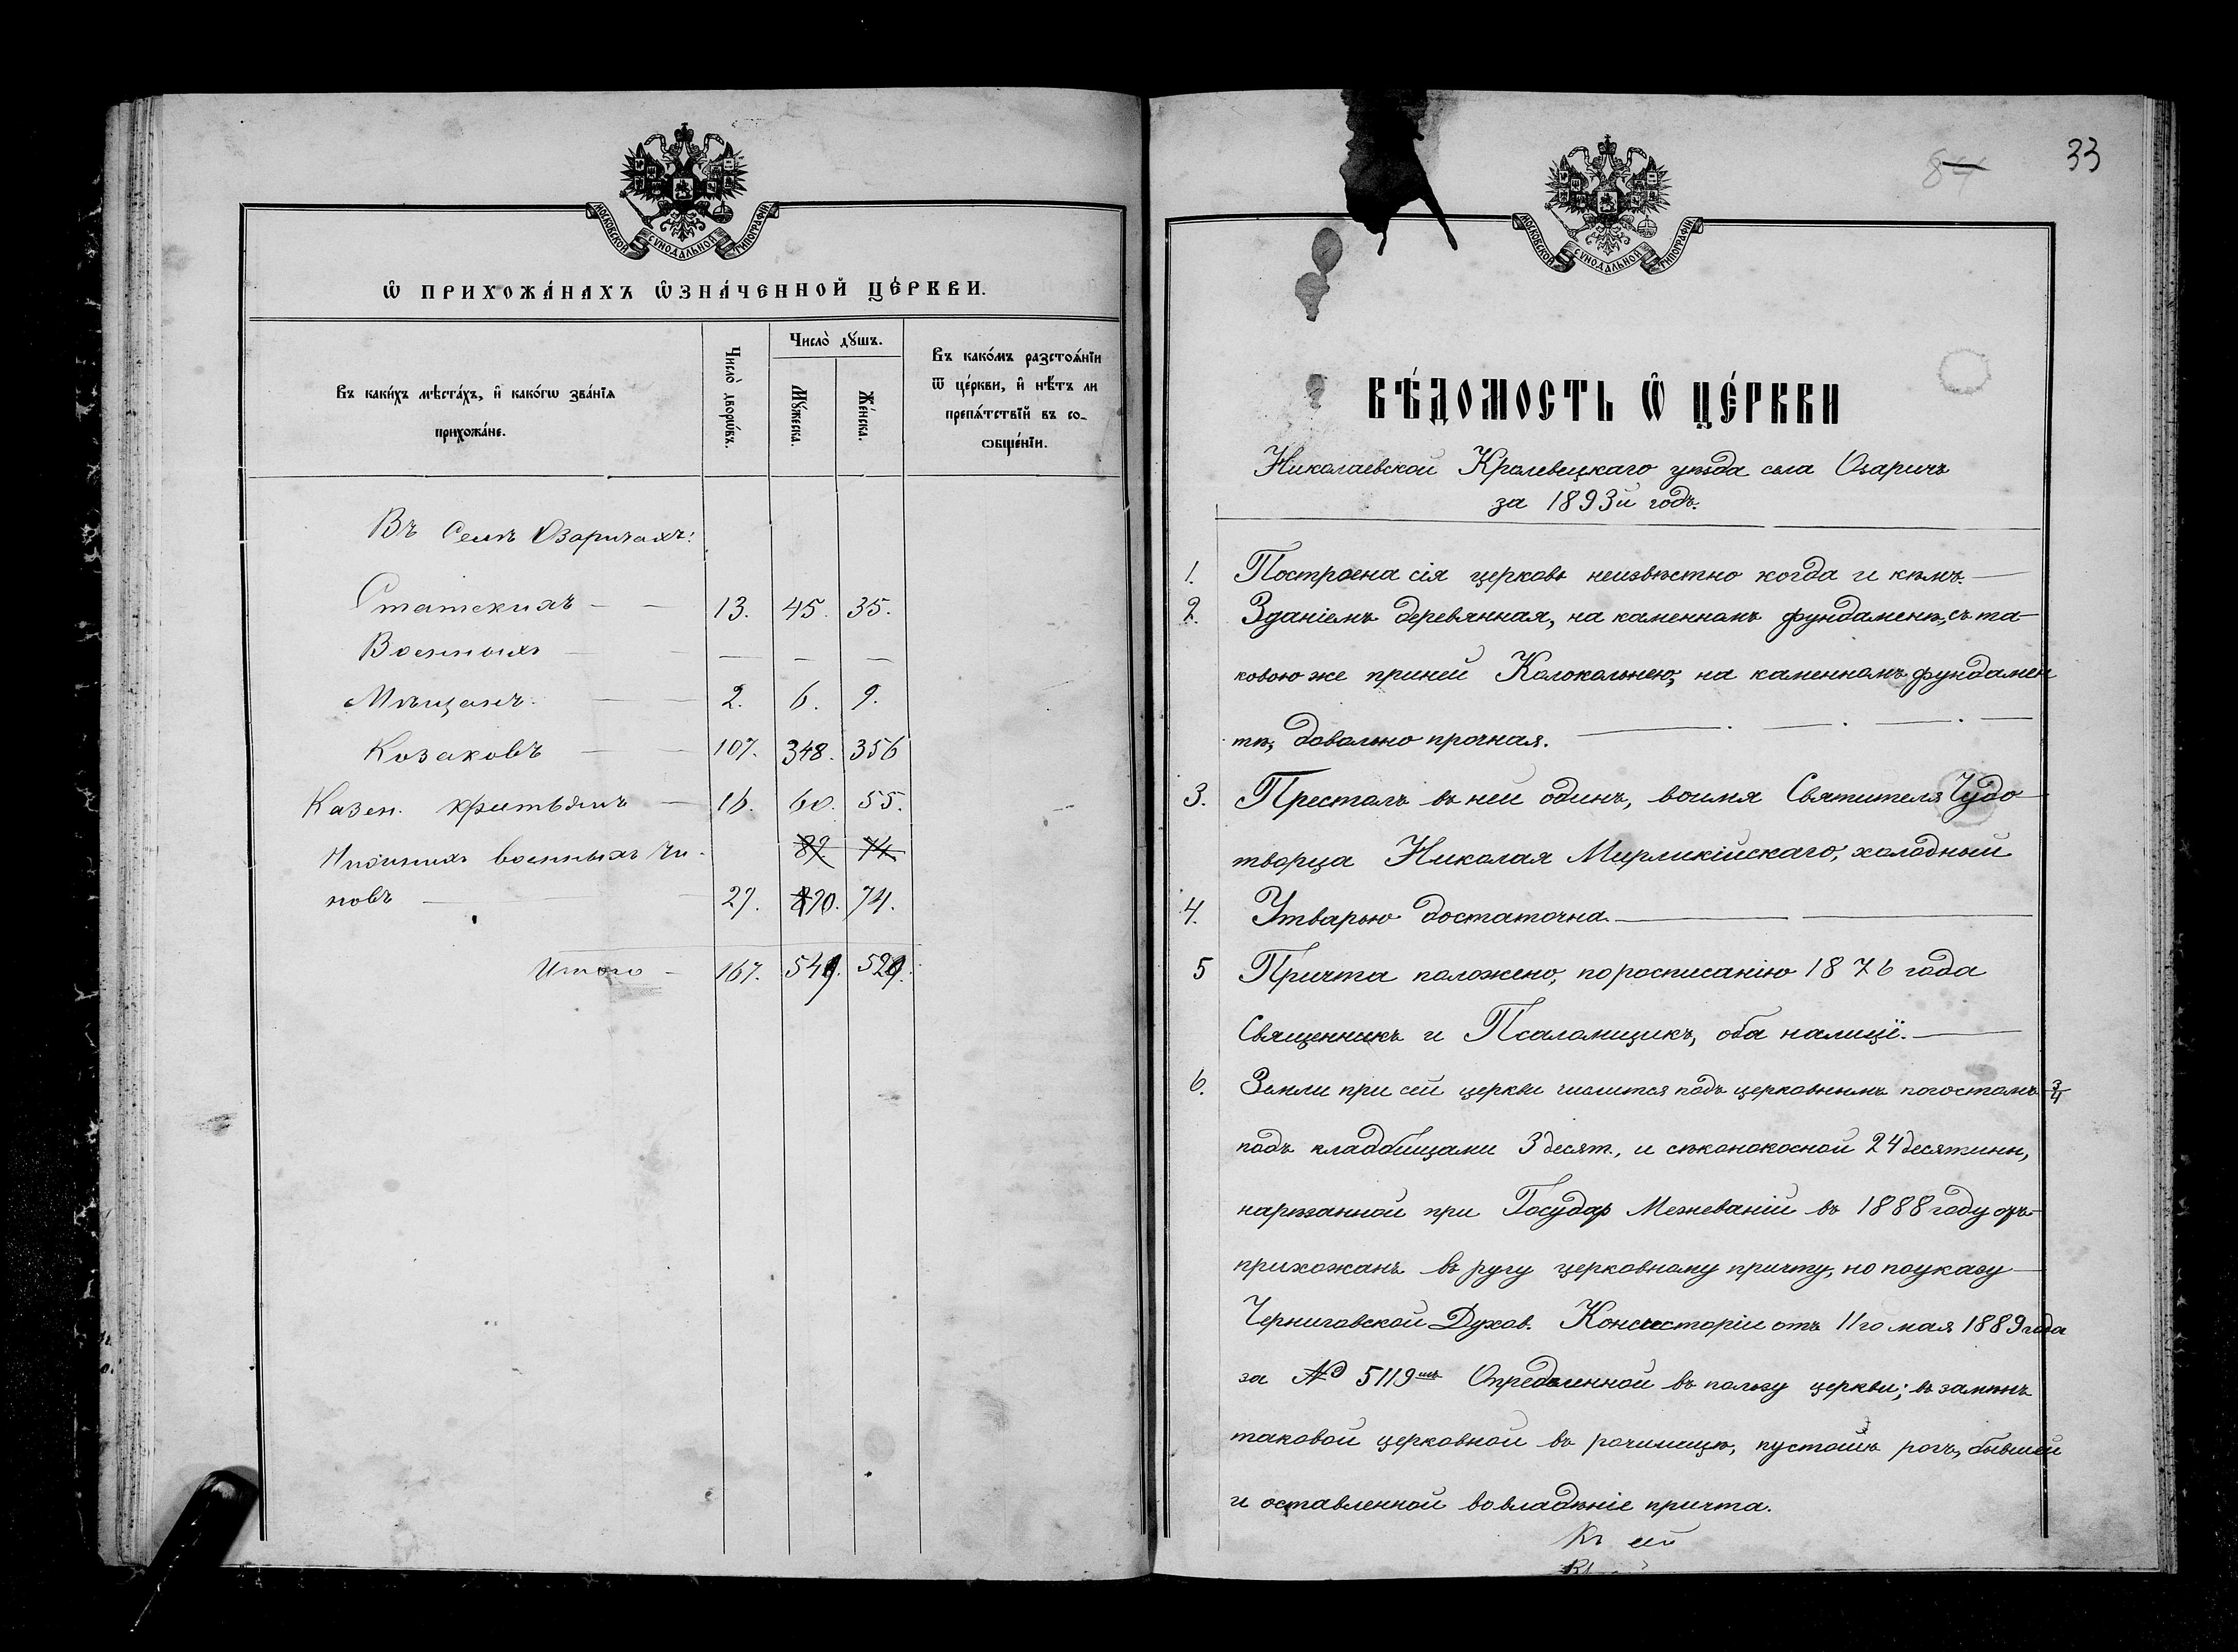 МОСКОВСКОЙ СѴНОДАЛЬНОЙ ТИПОГРАФІИ
Ѡ ПРИХОЖА́НАХЪ Ѡ҆ЗНА́ЧЕННОЙ ЦЕ́РКВИ.
Въ каки́хъ мѣста́хъ, и҆ како́гѡ зва́нїѧ прихожа́не.
Число̀ дворѡ́въ.
Число̀ дꙋ́шъ.
Мꙋ́жеска.
Же́нска.
Въ како́мъ разстоѧ́нїи
ѿ це́ркви, и҆ нѣ́тъ ли
препѧ́тствїй въ со-
ѻбще́нїи.
Въ Селѣ Озаричахъ:
Статскихъ — — 13. 45. 35.
Военныхъ — — — — —
Мѣщанъ. — — 2. 6. 9.
Козаковъ — — 107. 348. 356
Казен. крестьянъ — 18. 60. 55.
Нижнихъ военныхъ чи- 89 74
новъ — 27. 90. 74.
Итого — 167. 549. 529.
33
84
МОСКОВСКОЙ СѴНОДАЛЬНОЙ ТИПОГРАФІИ
ВѢ́ДОМОСТЬ Ѡ ЦЕ́РКВИ
Николаевской Кролевецкаго уѣзда села Озаричъ
за 1893й годъ.
1. Построена сія церковь неизвѣстно когда и кѣмъ. —
2. Зданіемъ деревянная, на каменномъ фундаментѣ, съ та-
ковою же приней Колокольнею, на каменномъ фундамен
тѣ, довольно прочная.
3. Престолъ въ ней одинъ, воимя Святителя Чудо-
творца Николая Мирликійскаго, холодный
4. Утварью достаточна. —
5 Причта положено, по росписанію 1876 года
Священникъ и Псаломщикъ, оба налицѣ. —
6. Земли при сей церкви числится подъ церковнымъ погостомъ 3/4
подъ кладбищами 3 десят., и сѣнокосной 24 десятины,
нарѣзанной при Государ Межеваніи въ 1888 году отъ
прихожанъ въ ругу церковному причту, но поуказу —
Черниговской Духов. Консисторіи отъ 11го мая 1889 года
за № 5119мъ Опредѣленной въ пользу церкви; въ замѣнъ
таковой церковной въ рочищѣ, пустошь рогъ, бывшей
и оставленной вовладѣніе причта.
Къ сей